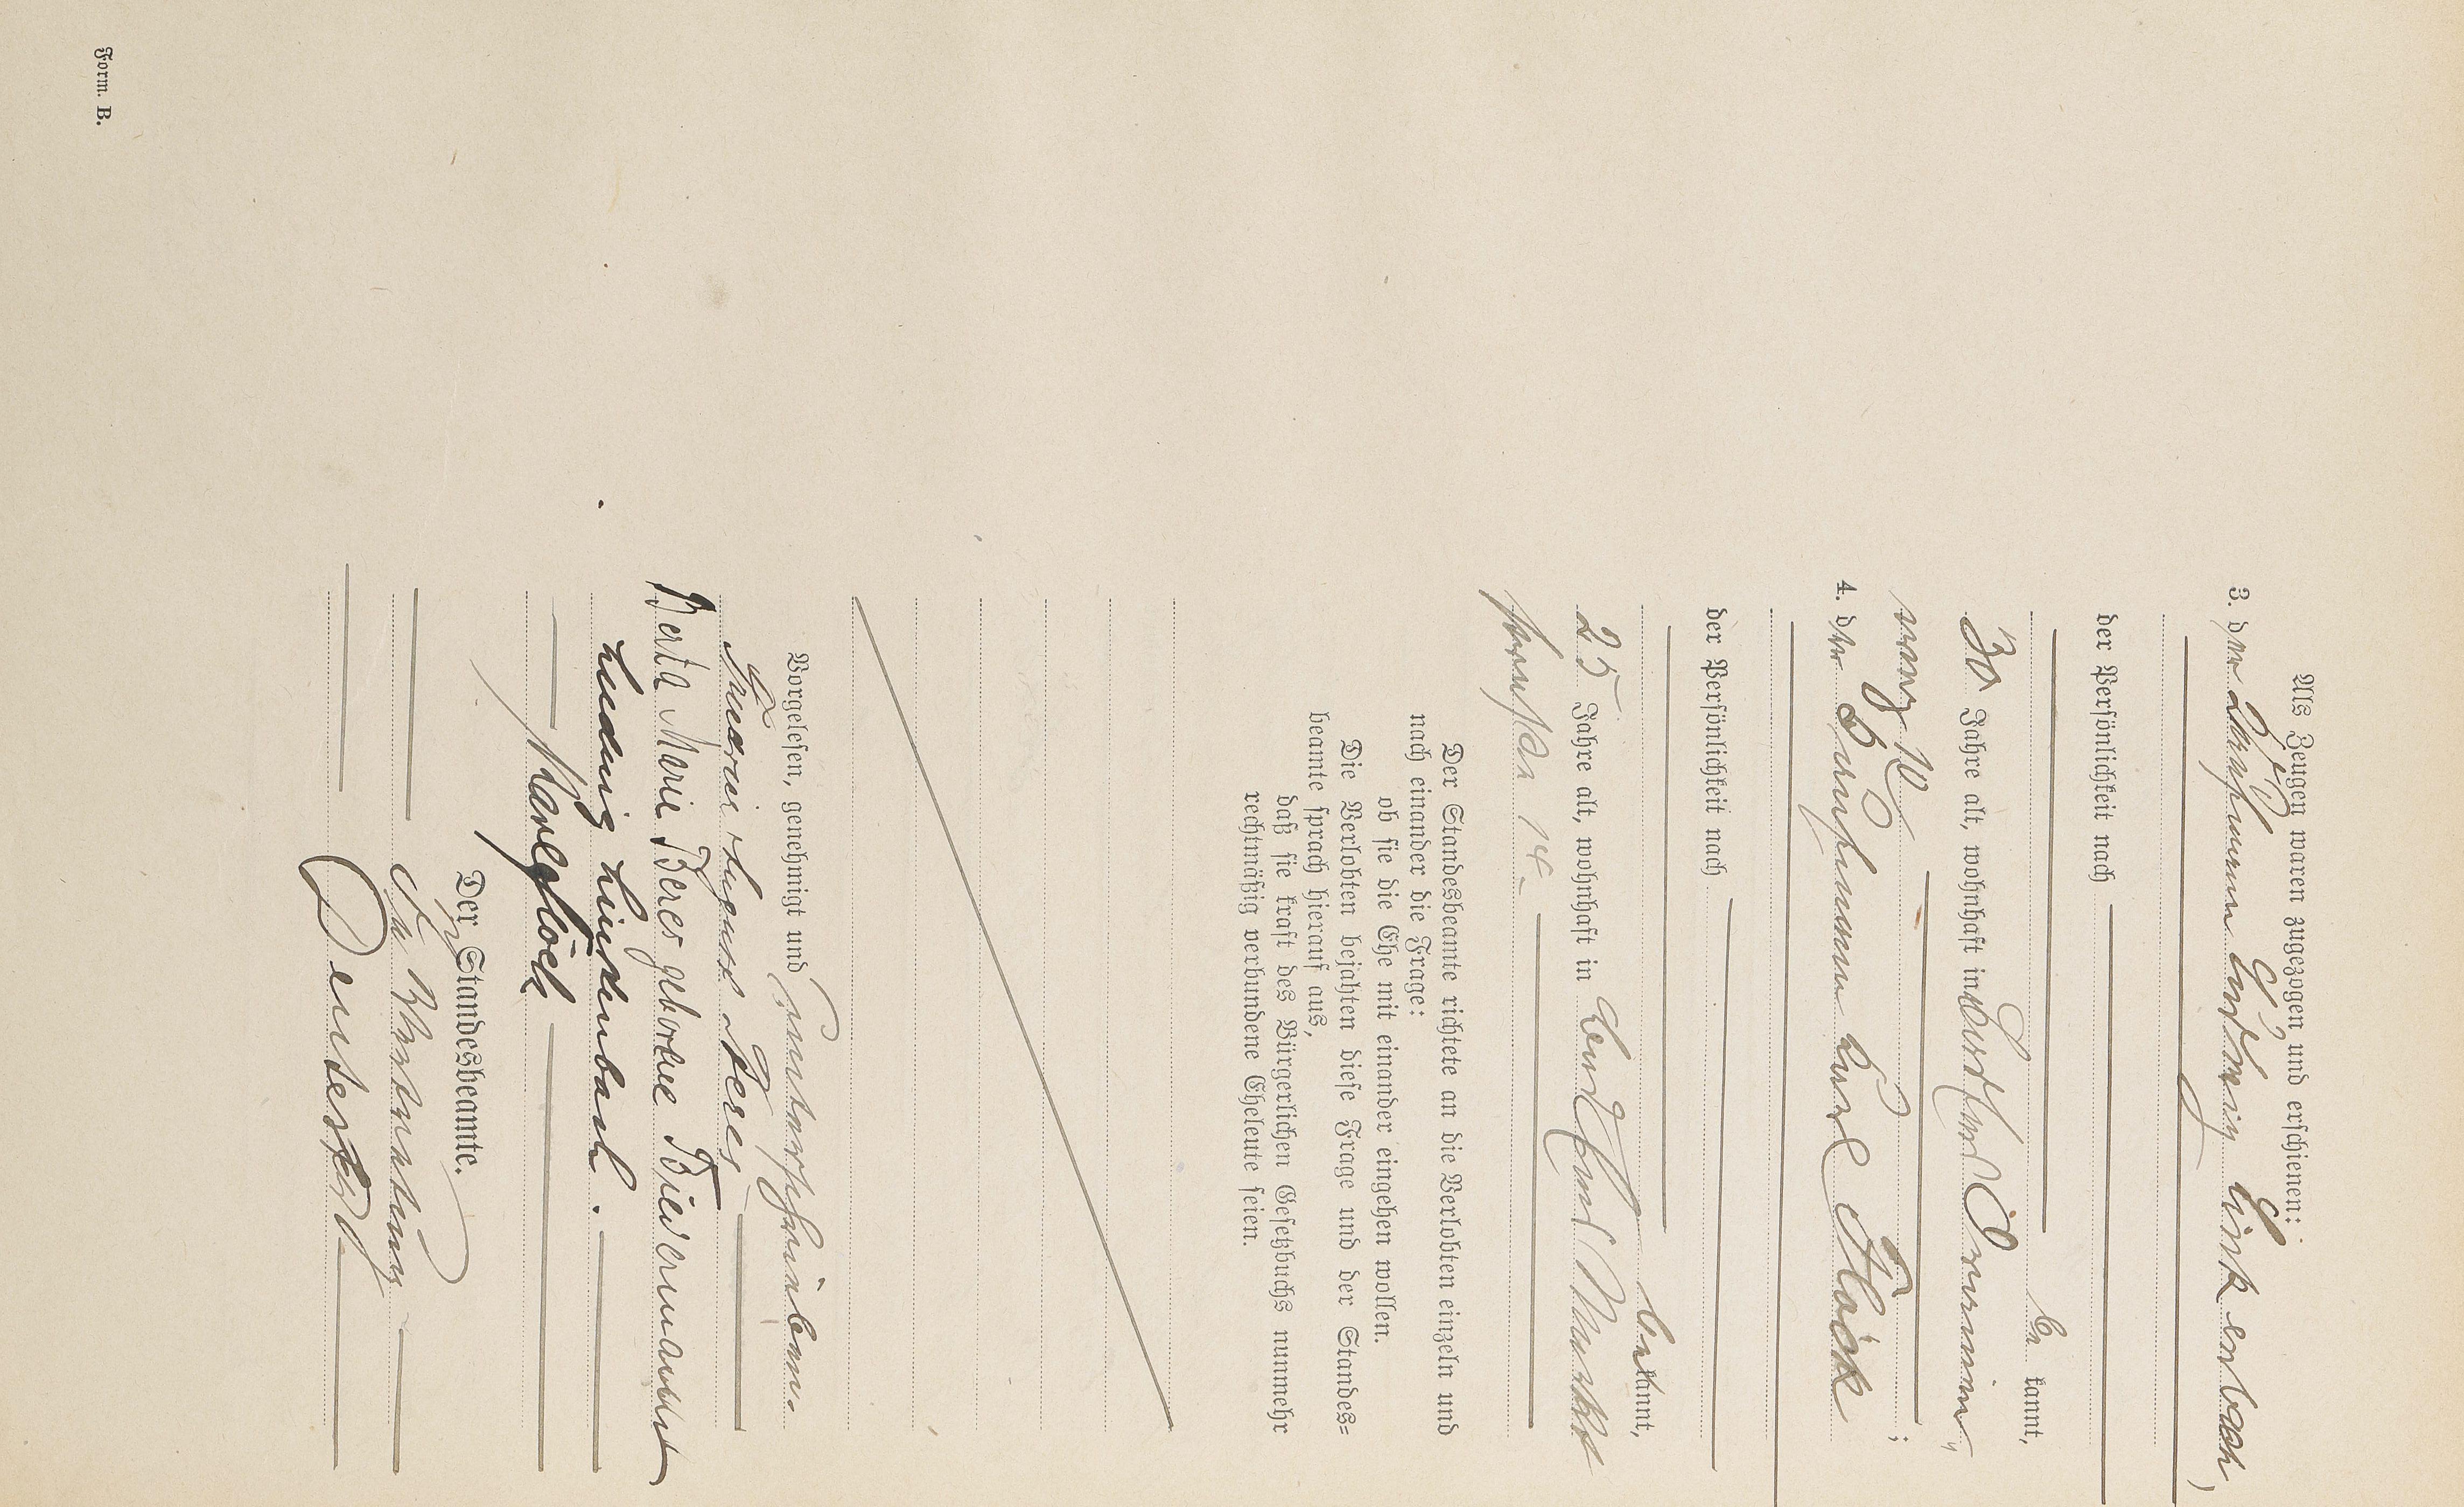 Als Zeugen waren zugezogen und erschienen:
3. der Kaufmann Ludwig
der Persönlichkeit nach
be kannt,
30 Jahre alt, wohnhaft in
weg 10
;
4. der Kaufmann Karl Flöck
der Persönlichkeit nach
bekannt,
25 Jahre alt, wohnhaft in
straße 14.
Der Standesbeamte richtete an die Verlobten einzeln und
nach einander die Frage:
ob sie die Ehe mit einander eingehen wollen.
Die Verlobten bejahten diese Frage und der Standes-
beamte sprach hierauf aus,
daß sie kraft des Bürgerlichen Gesetzbuchs nunmehr
rechtmäßig verbundene Eheleute seien.
Vorgelesen, genehmigt und unterschrieben.
August Beres
Berta Marie Beres geborene Biedermann
Ludwig
Karl Flöck
Der Standesbeamte.
In Vertretung
Form. B.